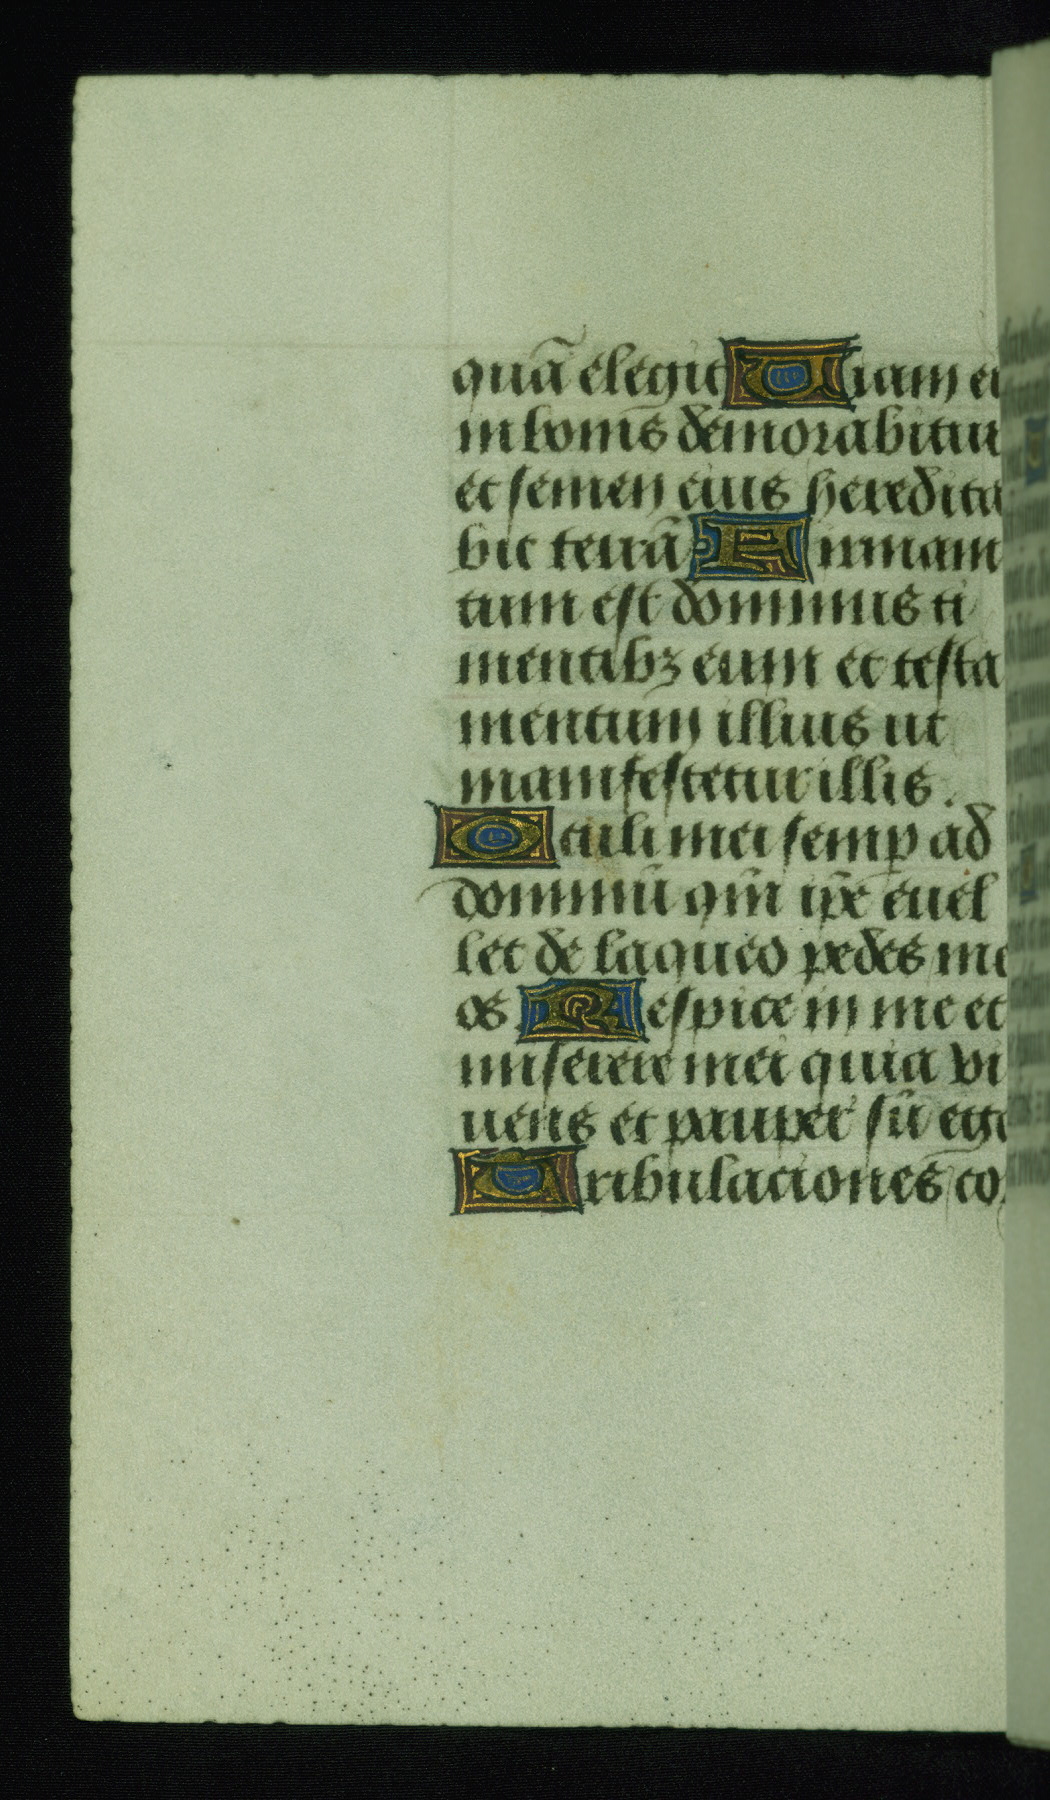 quā elegit Uiam ei
in bonis demorabitur
et semen eius heredita
bit terrā Firmam
tum est dominus ti
mentibꝫ eum et testa
mentum illius ut
manifestetur illis.
Oculi mei semꝑ ad
dominū qm̄ ip̄e euel
let de laqueo pedes me
os Respice in me et
miserere mei quia vi
uens et pauper sū ego
Tribulaciones co